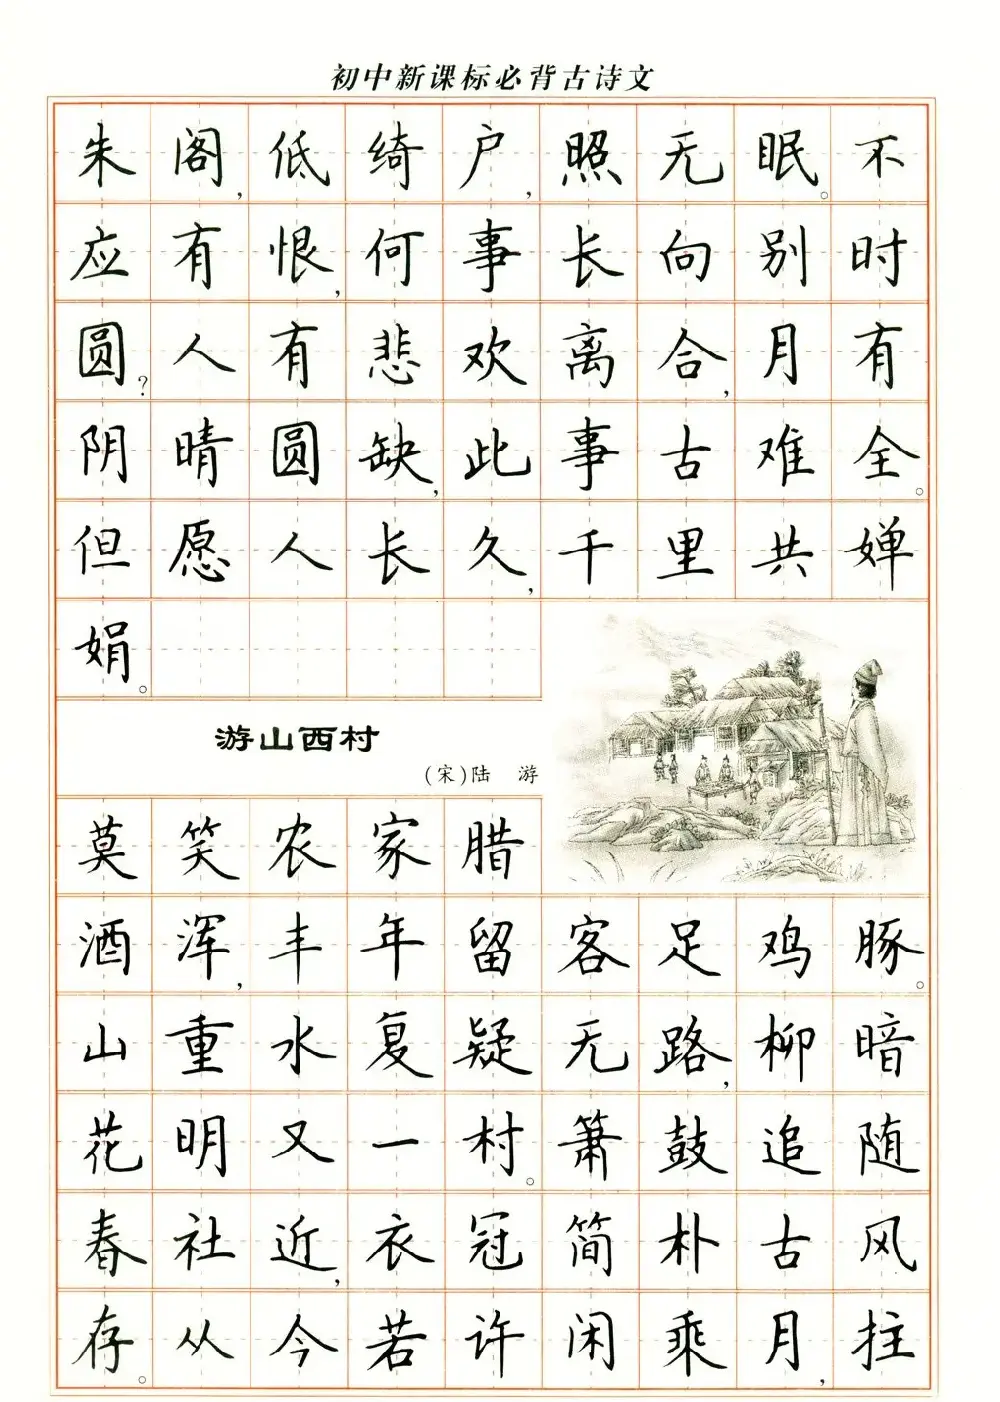 初中新课标必背古诗文
朱阁,低绮户,照无眠。不
应有恨,何事长向别时
圆?人有悲欢离合,月有
阴晴圆缺,此事古难全。
但愿人长久,千里共婵
娟。
游山西村
(宋)陆 游
莫笑农家腊
酒浑,丰年留客足鸡豚。
山重水复疑无路,柳暗
花明又一村。箫鼓追随
春社近,衣冠简朴古风
存。从今若许闲乘月,拄